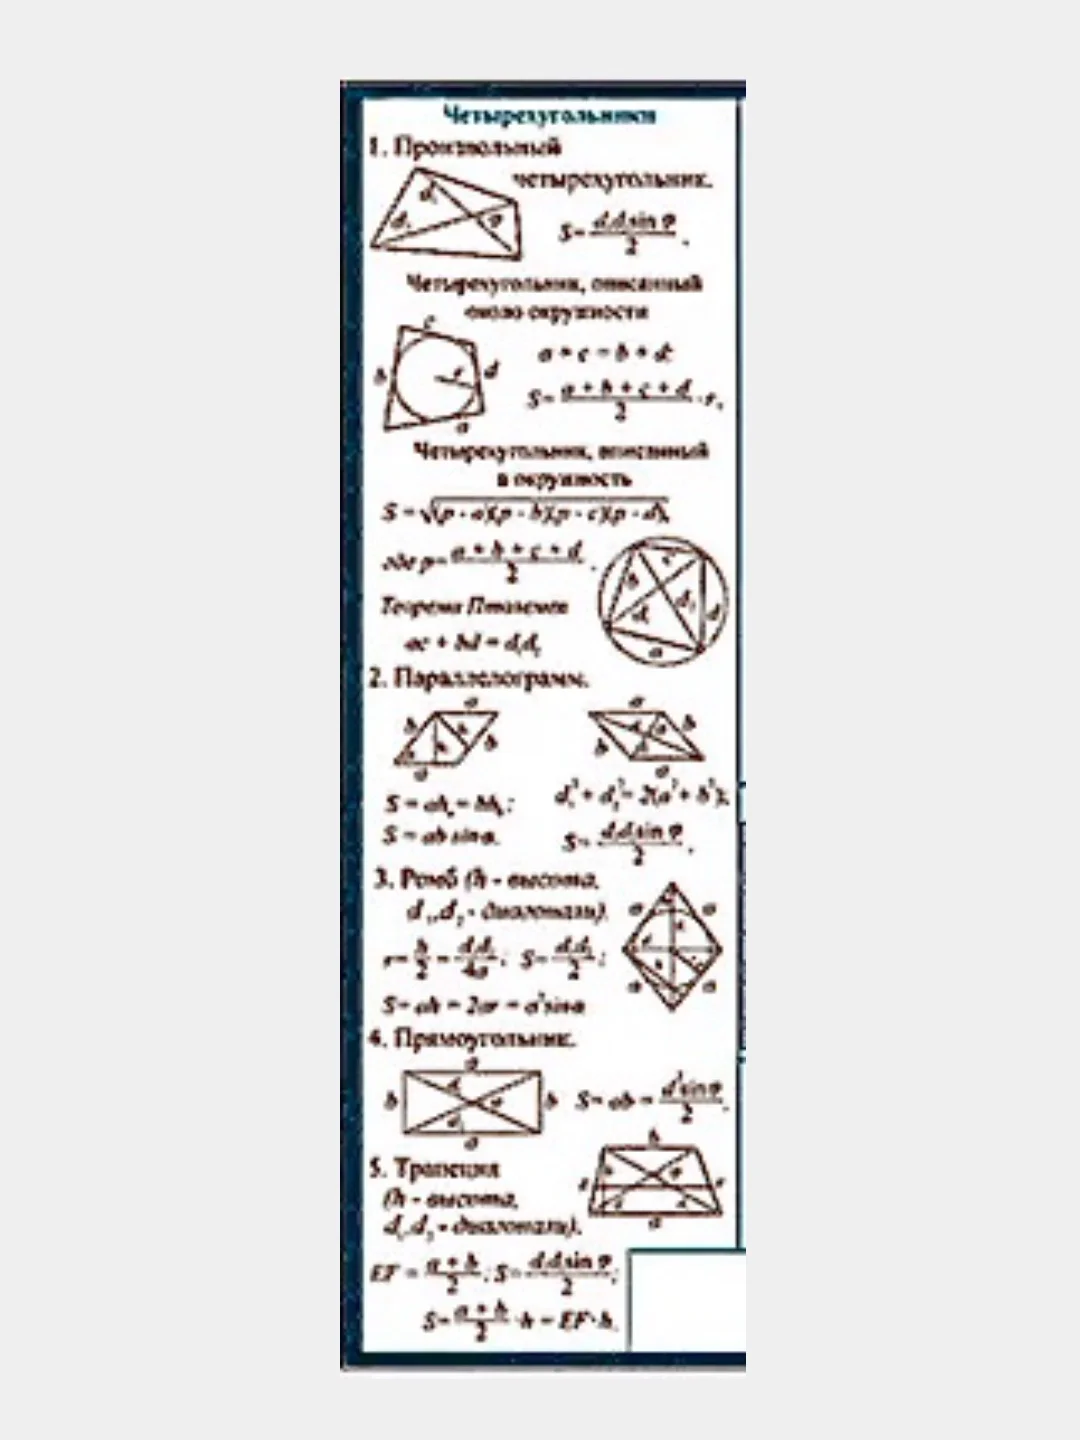 Четырехугольники
1. Произвольный
четырехугольник.
S = d₁d₂sin φ / 2 .
Четырехугольник, описанный
около окружности
a + c = b + d;
S = a + b + c + d / 2 · r.
Четырехугольник, вписанный
в окружность
S = √(p - a)(p - b)(p - c)(p - d),
где p = a + b + c + d / 2 .
Теорема Птолемея
ac + bd = d₁d₂
2. Параллелограмм.
S = ahₐ = bh_b ;
d₁² + d₂² = 2(a² + b²);
S = ab sinα.
S = d₁d₂sin φ / 2 .
3. Ромб (h - высота,
d₁, d₂ - диагонали).
r = h / 2 = d₁d₂ / 4a ; S = d₁d₂ / 2 ;
S = ah = 2ar = a²sinα
4. Прямоугольник.
S = ab = d²sin φ / 2 .
5. Трапеция
(h - высота,
d₁, d₂ - диагонали).
EF = a + b / 2 ; S = d₁d₂sin φ / 2 ;
S = a + b / 2 · h = EF · h.